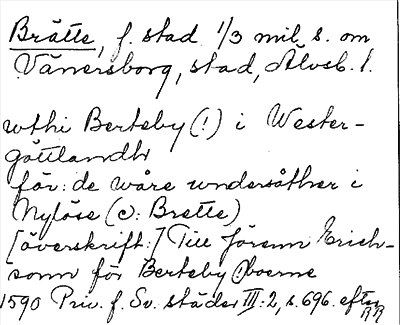 Brätte, f. stad 1/3 mil s. om
Vänersborg, stad, Älvsb. l.
wthi Berteby (!) i Wester-
göttlandh
för: de wåre undersåther i
Nylöse (ɔ: Brette)
[överskrift:] Till Jörenn Erich-
sonn för Berteby Boerne
1590 Priv. f. Sv. städer III:2, s. 696. efter
RR